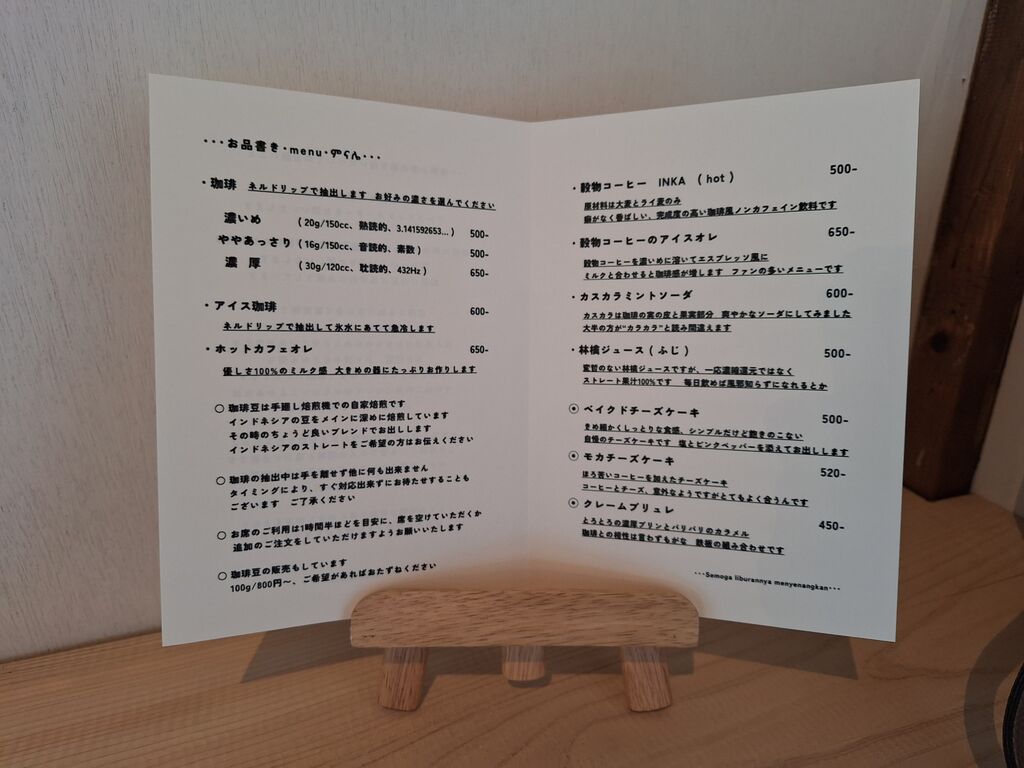 ・・・お品書き・menu・やらん・・・
・珈琲 ネルドリップで抽出します お好みの濃さを選んでください
濃いめ (20g/150cc、熟読的、3.141592653...) 500-
ややあっさり (16g/150cc、音読的、素数) 500-
濃 厚 (30g/120cc、耽読的、432Hz) 650-
・アイス珈琲 600-
ネルドリップで抽出して氷水にあてて急冷します
・ホットカフェオレ 650-
優しさ100%のミルク感 大きめの器にたっぷりお作りします
○ 珈琲豆は手廻し焙煎機での自家焙煎です
インドネシアの豆をメインに深めに焙煎しています
その時のちょうど良いブレンドでお出しします
インドネシアのストレートをご希望の方はお伝えください
○ 珈琲の抽出中は手を離せず他に何も出来ません
タイミングにより、すぐ対応出来ずにお待たせすることも
ございます ご了承ください
○ お席のご利用は1時間半ほどを目安に、席を空けていただくか
追加のご注文をしていただけますようお願いいたします
○ 珈琲豆の販売もしています
100g/800円〜、ご希望があればおたずねください
・穀物コーヒー INKA (hot) 500-
原材料は大麦とライ麦のみ
癖がなく香ばしい、完成度の高い珈琲風ノンカフェイン飲料です
・穀物コーヒーのアイスオレ 650-
穀物コーヒーを濃いめに溶いてエスプレッソ風に
ミルクと合わせると珈琲感が増します ファンの多いメニューです
・カスカラミントソーダ 600-
カスカラは珈琲の実の皮と果実部分 爽やかなソーダにしてみました
大半の方が"カラカラ"と読み間違えます
・林檎ジュース(ふじ) 500-
変哲のない林檎ジュースですが、一応濃縮還元ではなく
ストレート果汁100%です 毎日飲めば風邪知らずになれるとか
◉ ベイクドチーズケーキ 500-
きめ細かくしっとりな食感、シンプルだけど飽きのこない
自慢のチーズケーキです 塩とピンクペッパーを添えてお出しします
◉ モカチーズケーキ 520-
ほろ苦いコーヒーを加えたチーズケーキ
コーヒーとチーズ、意外なようですがとてもよく合うんです
◉ クレームブリュレ 450-
とろとろの濃厚プリンとパリパリのカラメル
珈琲との相性は言わずもがな 鉄板の組み合わせです
・・・Semoga liburannya menyenangkan・・・